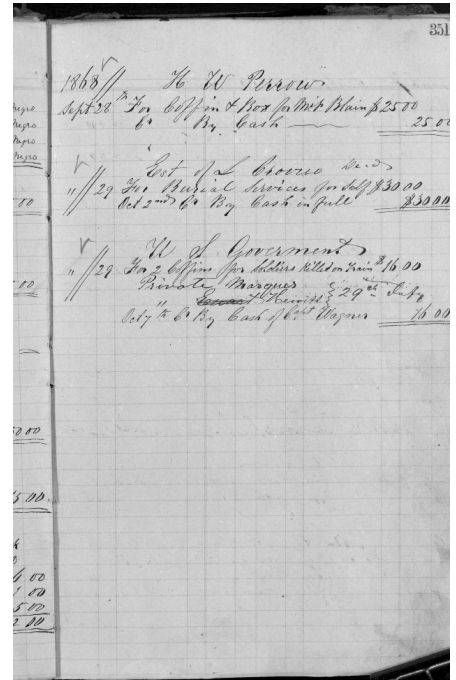 351
1868 // H W Perrow
Sept 28th For Coffin & Box for Blain $25 00
Cr By Cash 25.00
Est of L Dec-d
" // 29 For Burial Services for Self $30.00
Oct 2nd Cr By Cash in full $30.00
U S Goverment
" // 29 For 2 Coffins for Soldiers Killed on Train $16.00
Private Marques
Hewitt } 29th Infty
Oct 7th Cr By Cash of Capt Wagner 16.00
Negro
Negro
Negro
Negro
00
00
50 00
15.00
6 00
00
5 00
2 00